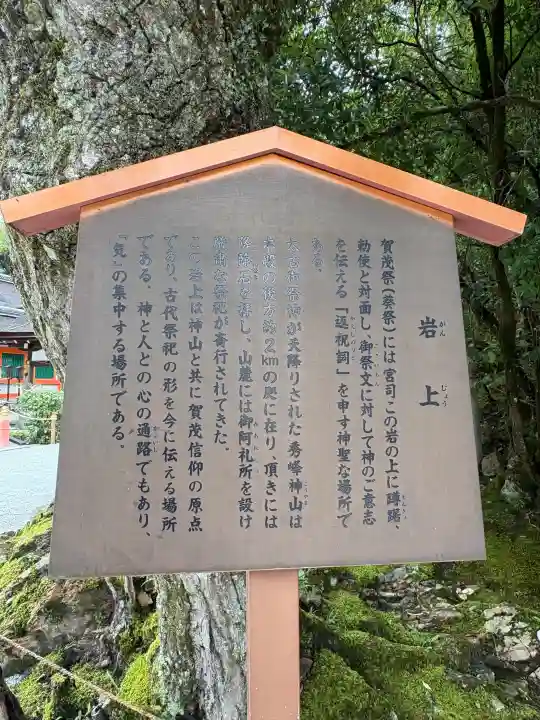 岩上
がん じょう
賀茂祭(葵祭)には宮司この岩の上に蹲踞、
勅使と対面し、御祭文に対して神のご意志
を伝える「返祝詞」を申す神聖な場所で
ある。
御祭神が天降りされた秀峰神山は
本殿の後方約2kmの処に在り、頂きには
降臨石を拝し、山麓には御阿礼所を設け
な祭祀が斎行されてきた。
ここ岩上は神山と共に賀茂信仰の原点
であり、古代祭祀の形を今に伝える場所
である。神と人との心の通路でもあり、
『気』の集中する場所である。